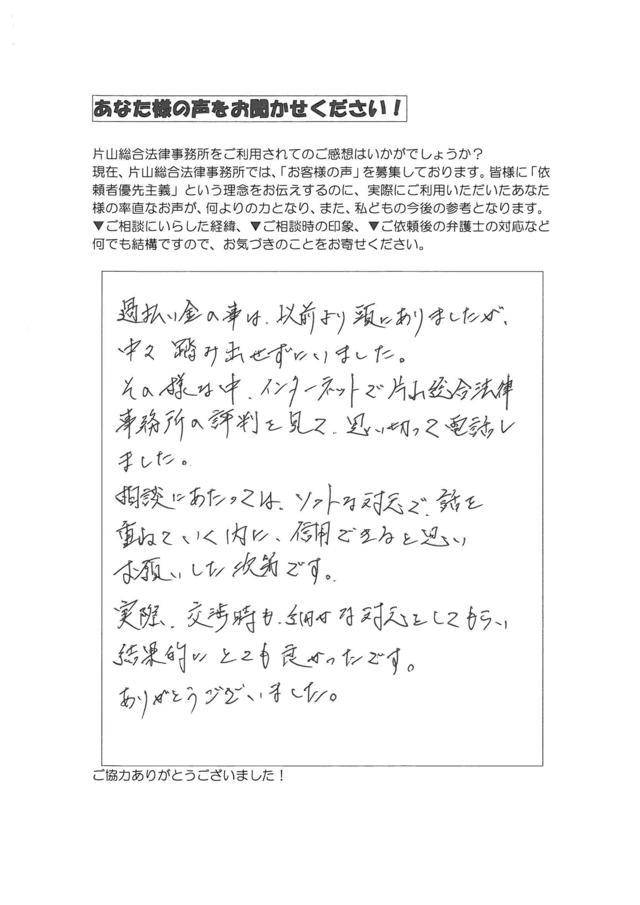 あなた様の声をお聞かせください！
片山総合法律事務所をご利用されてのご感想はいかがでしょうか？
現在、片山総合法律事務所では、「お客様の声」を募集しております。皆様に「依
頼者優先主義」という理念をお伝えするのに、実際にご利用いただいたあなた
様の率直なお声が、何よりの力となり、また、私どもの今後の参考となります。
▼ご相談にいらした経緯、▼ご相談時の印象、▼ご依頼後の弁護士の対応など
何でも結構ですので、お気づきのことをお寄せください。
過払い金の事は、以前より頭にありましたが、
中々踏み出せずにいました。
その様な中、インターネットで片山総合法律
事務所の評判を見て、思い切って電話し
ました。
相談にあたっては、ソフトな対応で、話を
重ねていく内に、信用できると思い
お願いした次第です。
実際、交渉時も、細かな対応をしてもらい
結果的にとても良かったです。
ありがとうございました。
ご協力ありがとうございました！